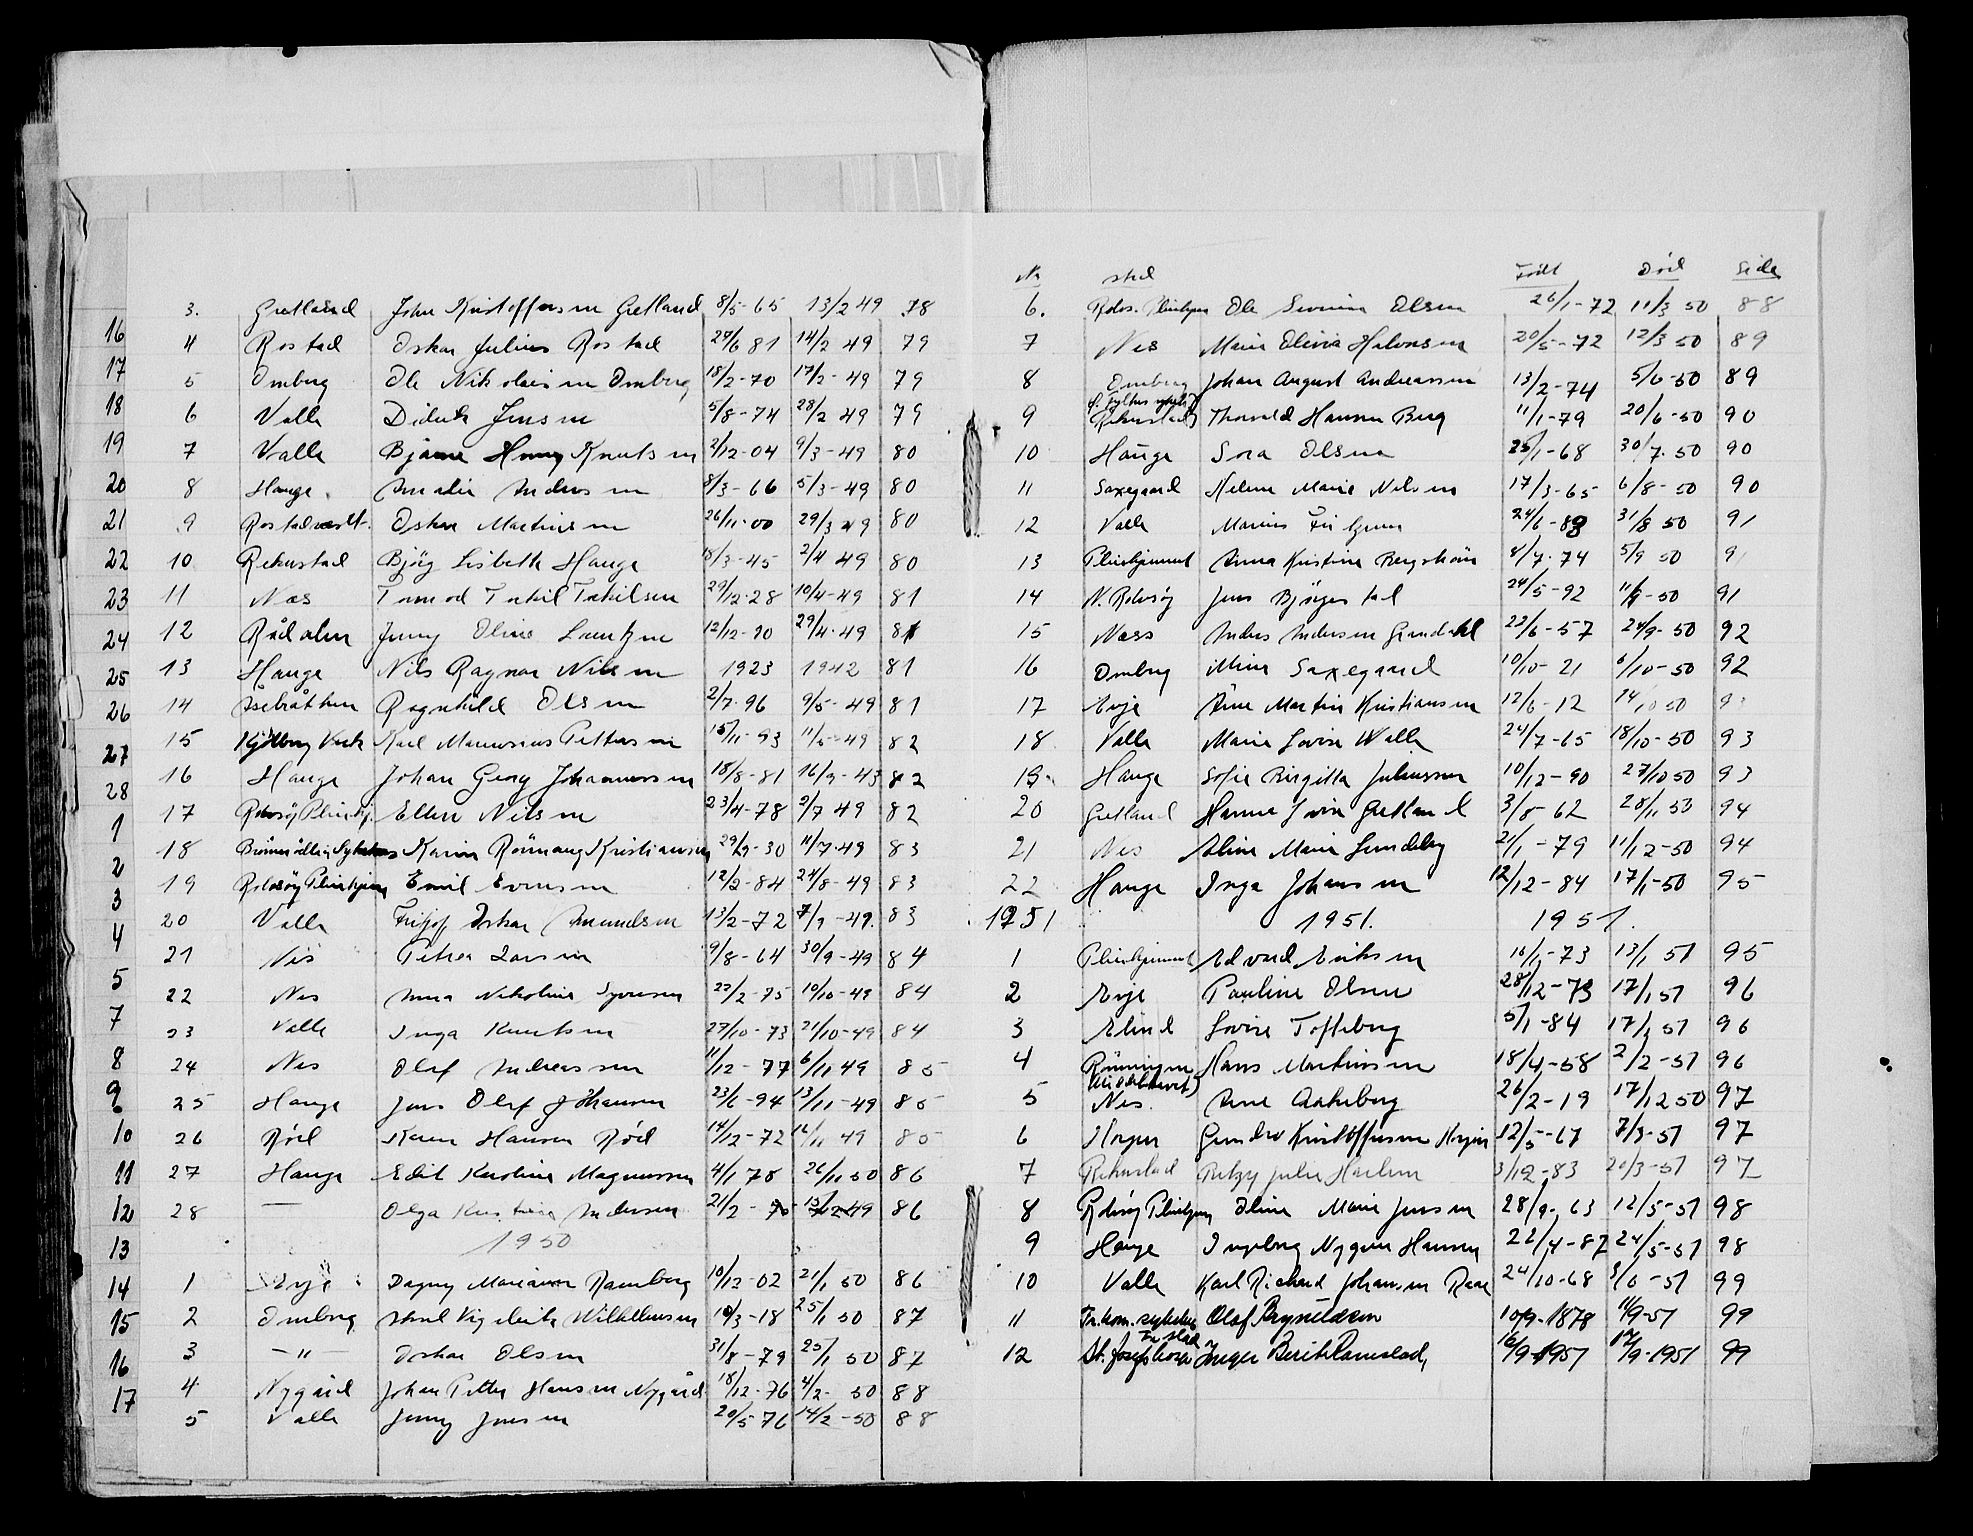 3. Gretland John Kristoffersen Gretland 8/5-65 13/2 49 78
4 Rostad Oskar Julius Rostad 24/6 81 14/2 49 79
5 Omberg Ole Nikolaisen Omberg 18/2-70 17/2-49 79
6 Valle Didrik Jensen 5/8-74 28/2 49 79
7 Valle Bjarne Henry Knutsen 2/12-04 9/3-49 80
8 Hauge Amalie Andersen 8/3-66 5/3-49 80
9 Oskar Martinsen 26/11-00 29/3 49 80
10 Rekustad Bjørg Lisbeth Hauge 18/3-45 2/4 49 80
11 Næs Tormod Torkil Torkilsen 29/12-28 10/4-49 81
12 Rådalen Jenny Oline Lauritzen 12/12-90 29/4-49 81
13 Hauge Nils Ragnar Nilsen 1923 1942 81
14 Ragnhild Olsen 2/7-96 9/5-49 81
15 Karl Pettersen 15/11-93 11/5-49 82
16 Hauge Johan Georg Johannessen 18/8-81 82
17 Rolvsøy Pleiehj. Ellen Nilsen 23/4-78 2/7 49 82
18 Karin Kristiansen 29/9-30 11/7-49 83
19 Rolvsøy Pleiehjem Emil Evensen 12/2-84 24/8-49 83
20 Valle Fritjof Oskar Amundsen 13/2-72 7/9-49. 83
21 Nes Petrea Larsen 9/8-64 30/9-49 84
22 Nes Anna Nikoline Syversen 22/2-75 10/10-49 84
23 Valle Inga Knutsen 27/10-73 21/10-49 84
24 Nes Olaf Andreassen 11/12-77 6/11 49 85
25 Hauge Jens Olaf Johansen 23/6-94 13/11-49 85
26 Röd Karen Hansen Röd 14/12-72 16/11 49 85
27 Hauge Edit Karoline Magnussen 4/1 78 26/11 50 86
28 — Olga Kristine Andersen 21/2- 49 86
1950
1 Evje Dagny Marianne Ramberg 10/12-02 21/1 50 86
2 Omberg Wilhelmsen 19/3-18 25/1 50 87
3 —"— Oskar Olsen 31/8-79 25/1 50 87
4 Nygård Johan Petter Hansen Nygård 18/12-76 4/2-50 88
5 Valle Jenny Jensen 20/5-76 14/2-50 88
16
17
18
19
20
21
22
23
24
25
26
27
28
1
2
3
4
5
7
8
9
10
11
12
13
14
15
16
17
No sted Født Död Side
6. Rolvs. Pleiehjem Ole Severin Olsen 26/1-72 11/3 50 88
7 Nes Marie Olivia Halvorsen 20/5-72 12/3 50 89
8 Omberg Johan August Andreassen 13/2-74 5/6-50 89
9 Rekustad Thorvald Hansen Berg 11/1-79 20/6-50 90
10 Hauge Sora Olsen 25/1-68 30/7-50 90
11 Saxegaard Helene Marie Nilsen 17/3-65 6/8-50 90
12 Valle Marius 24/6-83 31/8 50 91
13 Pleiehjemmet Anna Kristine 8/7-74 5/9 50 91
14 N. Rolvsøy Jens Bjørgestad 24/5-92 11/9-50 91
15 Næss Anders Andersen Grandahl 22/6-57 24/9-50 92
16 Omberg Mina Saxegaard 10/10-21 6/10-50 92
17 Evje Arne Martin Kristiansen 12/6-12 14/10 50
18 Valle Marie Lovise Walle 24/7-65 18/10-50 93
19 Hauge Sofie Birgitta Juliussen 10/12-90 27/10 50 93
20 Gretland Hanna Lovise Gretland 3/8-62 28/11 53 94
21 Nes Aline Marie Lundeby 21/1-79 11/12-50 94
22 Hauge Inga Johansen 12/12-84 17/1-50 95
1951 1951. 1951.
1 Pleiehjemmet Edvard Eriksen 16/1-73 13/1 51 95
2 Evje Pauline Olsen 28/12-73 17/1 51 96
3 Elind Lovise Tofteberg 5/1-84 17/1 51 96
4 Rønningen Hans Martinsen 18/4-58 2/2-51 96
5 Nes. Arne Aakeberg 26/2-19 17/12 50 97
6 Gundro Kristoffersen 12/5-67 7/3-51 97
7 Rekustad Betzy Julie 3/12-83 20/3-51 97
8 Rolvsøy Pleiehjem Oline Marie Jensen 28/9-63 12/5-51 98
9 Hauge Ingeborg Nygaard Hansen 22/4-87 24/5-51 98
10 Valle Karl Richard Johansen 24/10-68 9/6-51 99
11 Fr. kom. sykehus Olaf Brynildsen 10/9-1878 11/9-51 99
12 St. Josephs Fr.stad Inger Berit Ramstad, 16/9-1951 17/9-1951 99